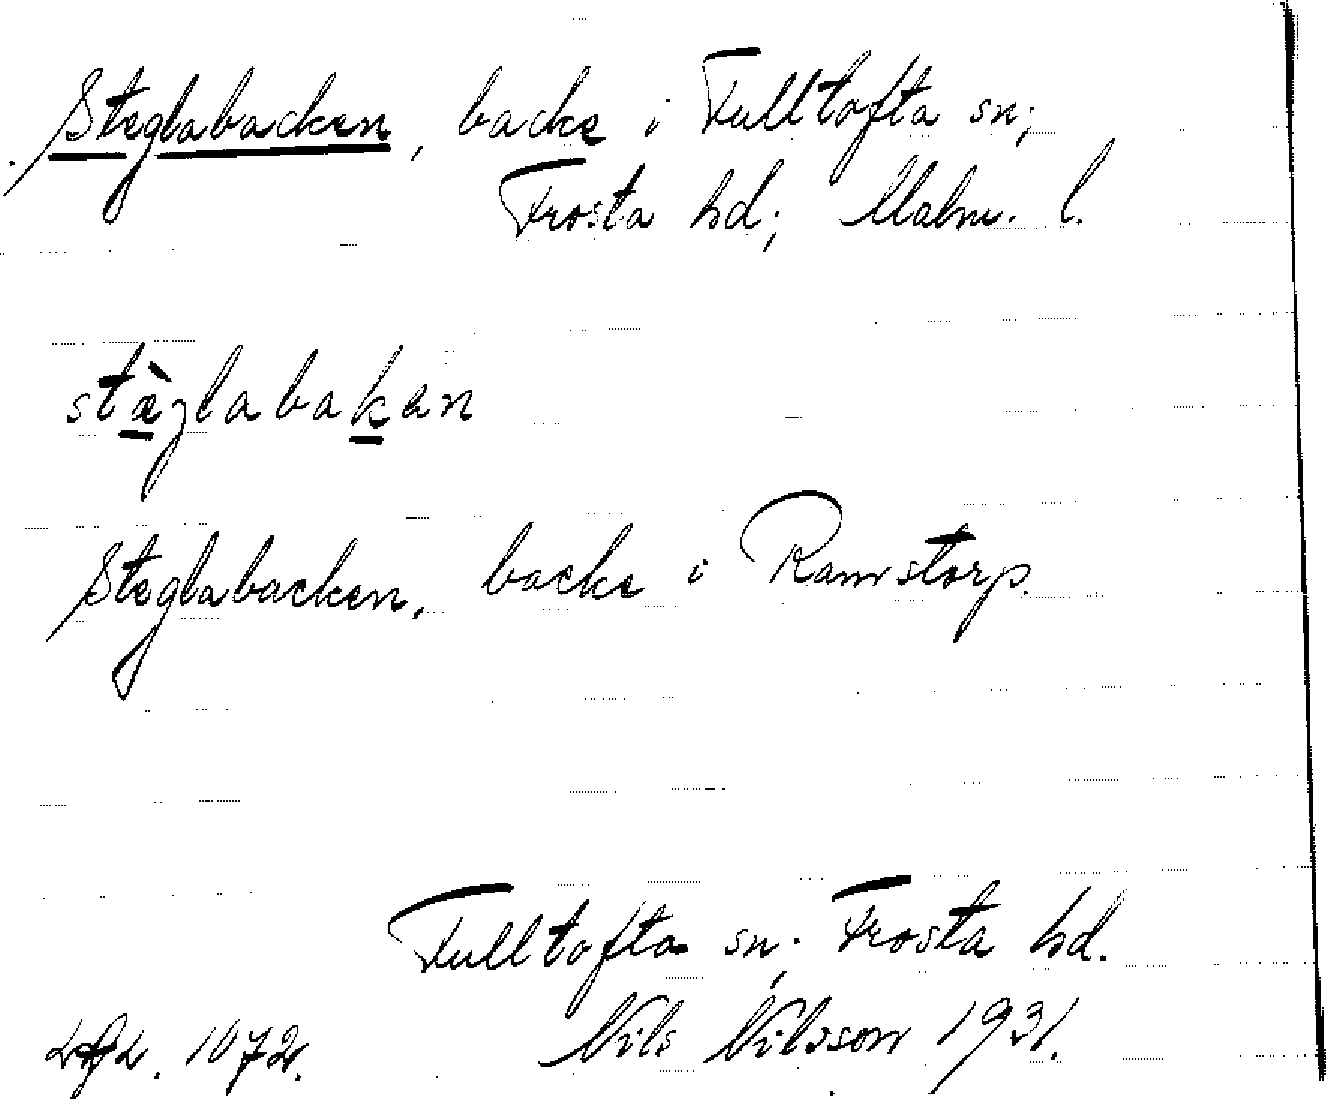 Steglabacken, backe i Fulltofta sn;
Frosta hd; Malm. l.
stæ̀glabakan
Steglabacken, backe i Ramstorp.
Fulltofta sn. Frosta hd.
Nils Nilsson 1931.
1072.